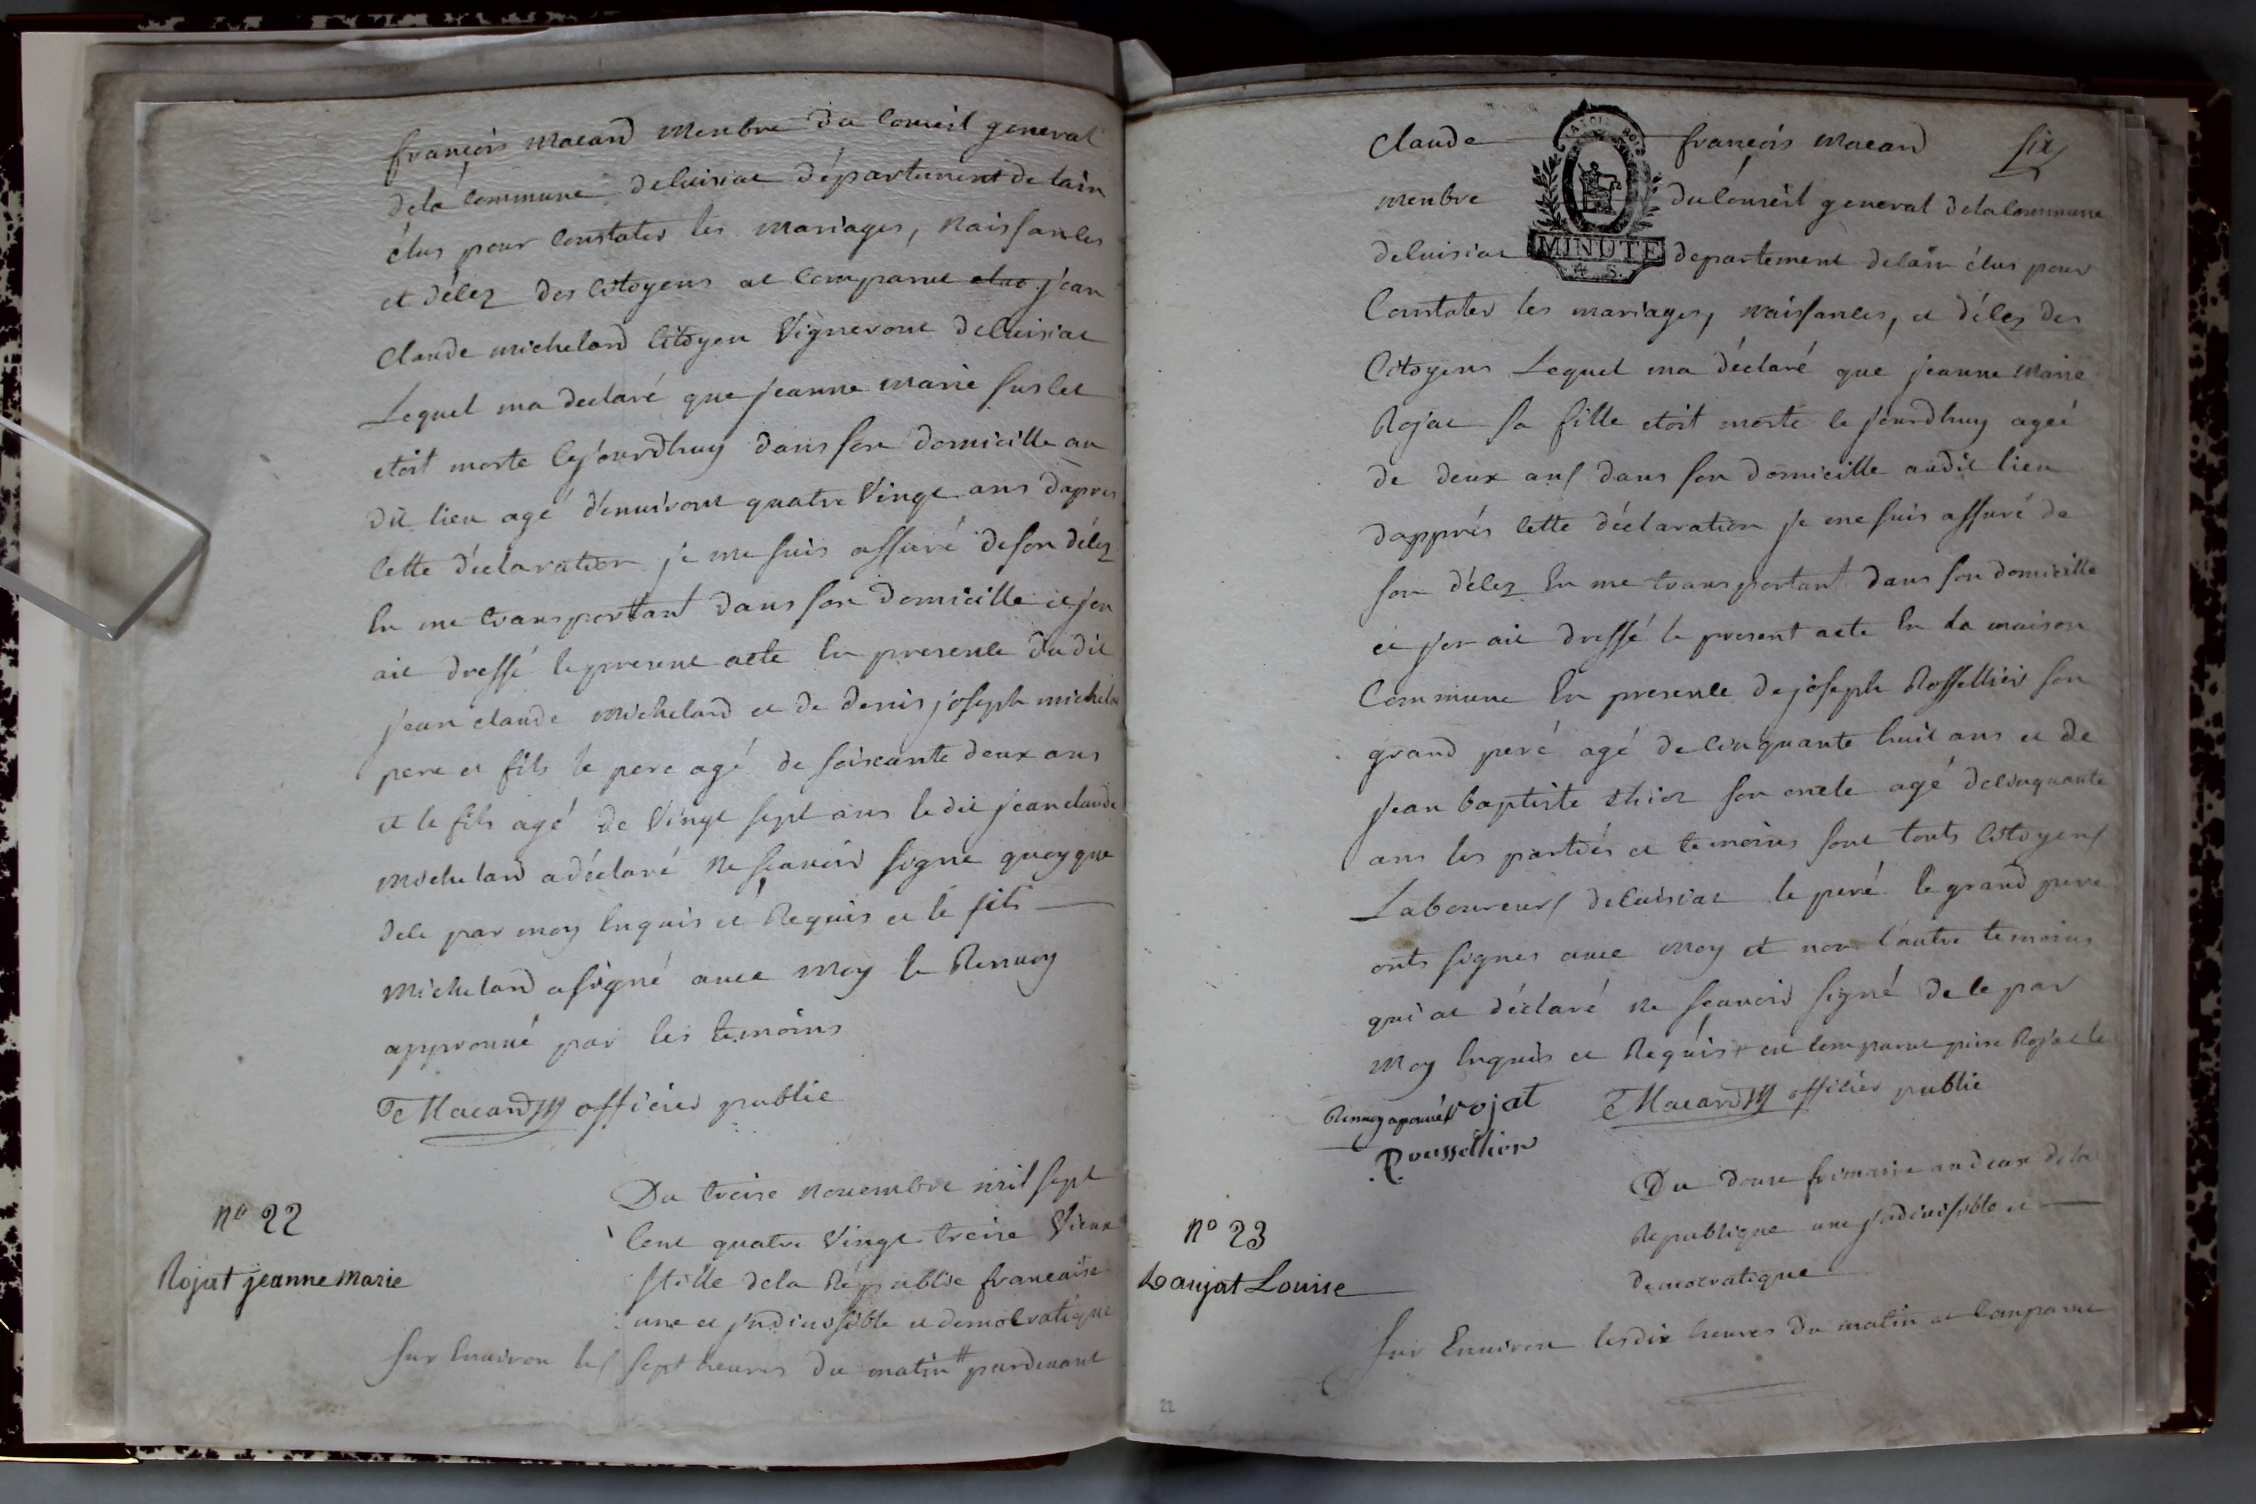 françois macard membre du Conseil general
de la Commune deluisiat département de lain
élus pour Constater les mariages, naissances
et décez des Citoyens at Comparut jean
Claude michelard Citoyen Vigneront deluisiat
Lequel ma declaré que jeanne marie
etoit morte Cejourdhuy dans son domicille au
dit lieu agé denviront quatre Vingt ans dapres
Cette déclaration je me suis assuré de son décez
En me transportant dans son domicille et jen
ait dressé le present acte En presence dudit
jean claude Michelard et de denis joseph michelar
pere et fils le pere agé de soixante deux ans
et le fils agé de Vingt sept ans le dit jean claude
michelard a déclaré ne sçavoir signé quoyque
dele par moy Enquis et Requis et le fils
Michelard a signé avec moy le Renvoy
approuvé par les temoins
Macard officier public
N° 22
Rojat jeanne Marie
Du treize novembre mil sept
Cent quatre Vingt treize Vieux
stille dela République francaise
une et jndivisible et democratique
Sur Environ les sept heures du matin # pardevant
Claude françois macard six
membre du Conseil general dela Commune
deluisiat departement delain élus pour
MINUTE
4 S.
Constater les mariages, naissances, et décez des
Citoyens Lequel ma déclaré que jeanne Marie
Rojat sa fille etoit morte le jourdhuy ageé
de deux ans dans son domicille audit lieu
dapprés Cette déclaration je me suis assuré de
son décez En me transportant dans son domicille
et jen ait dressé le present acte En la maison
Commune En presence de joseph Rossellier son
grand peré agé de Cinquante huit ans et de
jean baptiste son oncle agé de Cinquante
ans les partiés et temoins sont touts Citoyens
Laboureurs deluisiat le peré le grand pere
onts signes avec moy et non l'autre temoins
qui at déclaré ne sçavoir signé dele par
Moy Enquis et Requis + est Comparut pierre Rojat le
Renvoy aprouvé Rojat Macard officier public
Roussellion
N° 23
Laujat Louise
Du douze frimaire an deux dela
Republique une jndivisible et
democratique
Sur Environt les dix heures du matin at Comparut
22